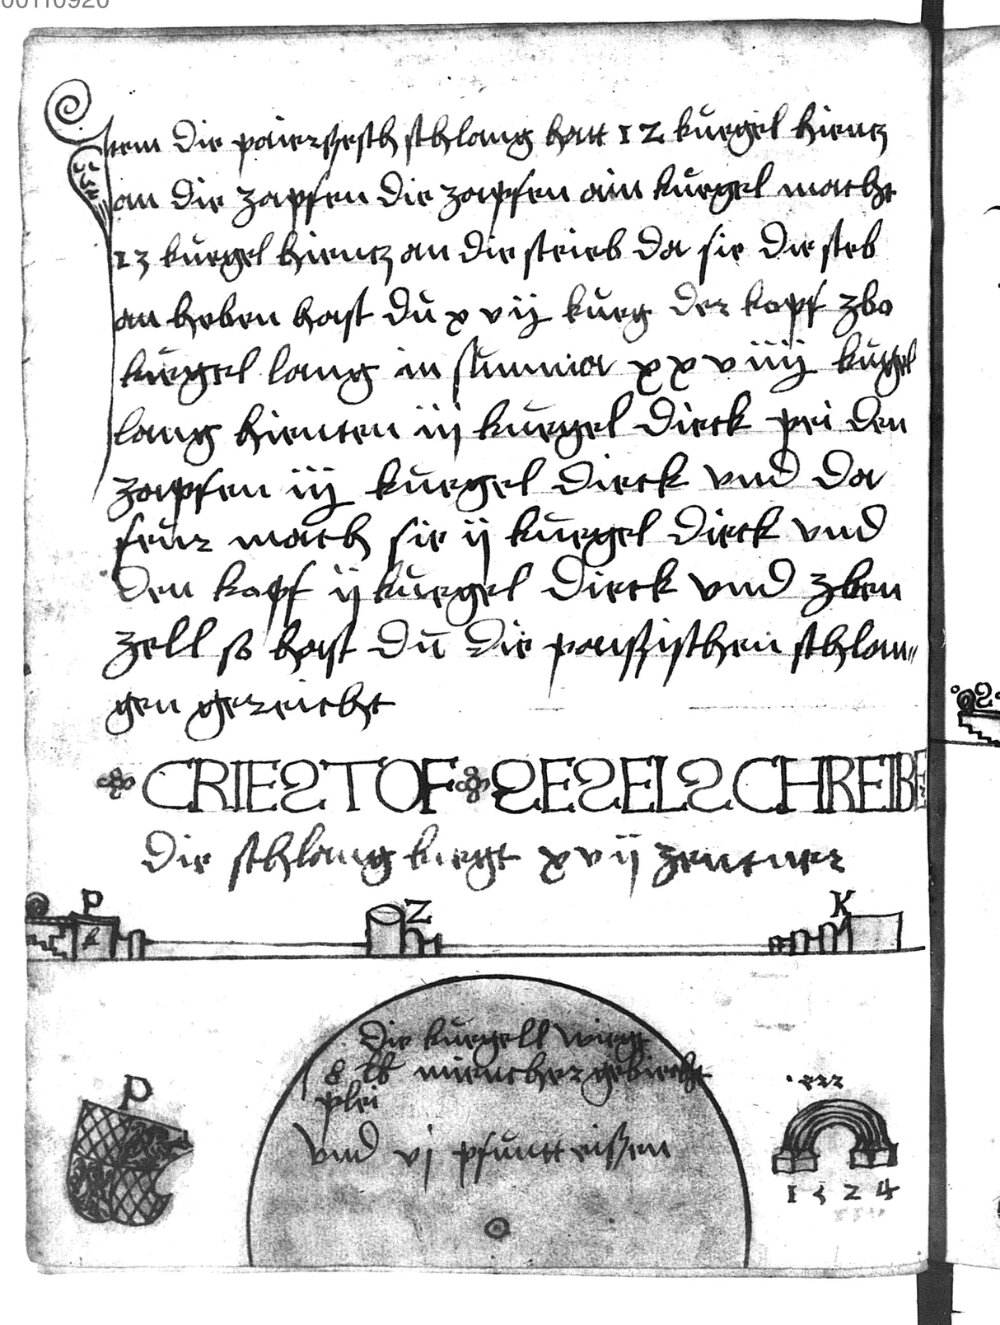 Item die paierßesch schlang hatt 12 kuegel hientz
an die zapfen die zapfen ain kuegel macht
13 kuegel hientz an die scrieb da sie die steb
an heben hast du xvij kueg der kopf zbo
kuegel lang in summa xxviiij kugel
lang hienten iij kuegel dieck pei den
zapfen iij kuegel dieck vnd da
feur mach sie ij kuegel dieck vnd
den kopf ij kuegel dieck vnd zben
zell so hast du die paussischen schlan„
gen gereicht
CRIESTOF SESELSCHREIBE
die schlang biegt xvij zentner
P Z K
k
die kuegell wiegt
8 lb miencher gebiecht
plei
vnd vj pfuntt eissen
P
1 5 2 4